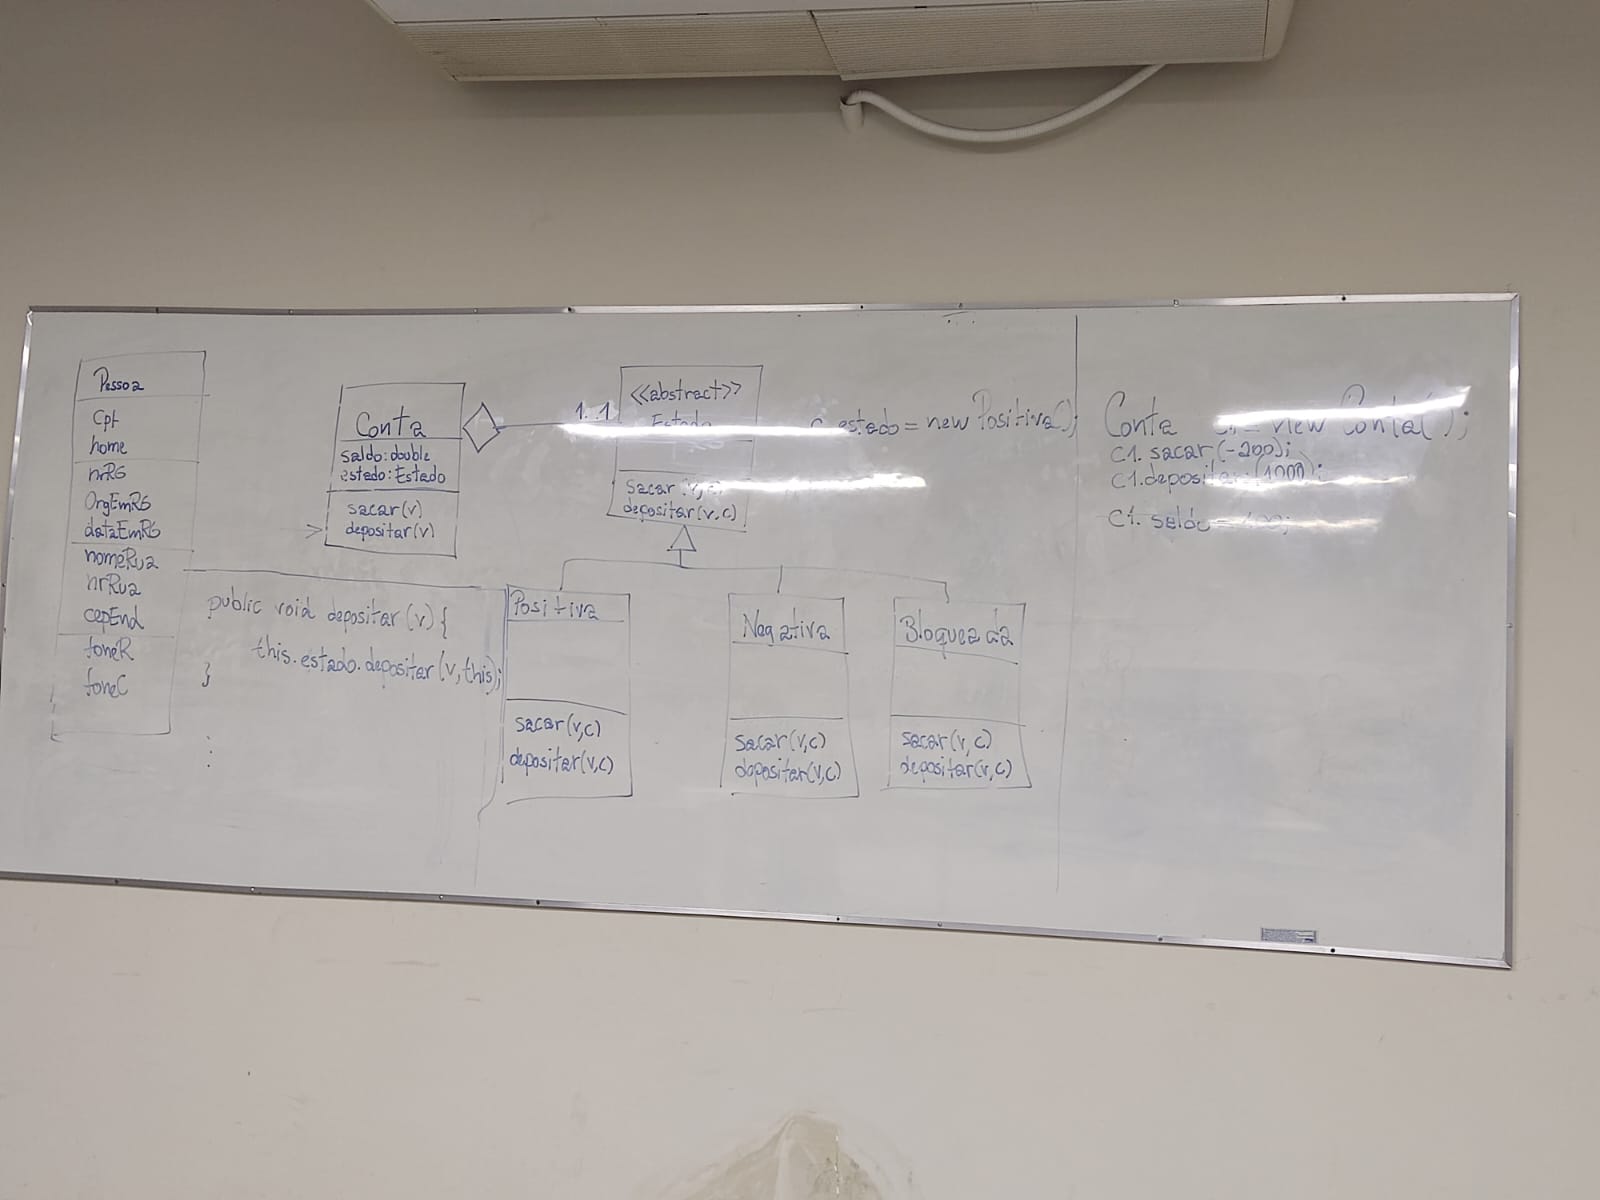 Pessoa
Cpf
nome
nrRG
OrgEmRG
dataEmRG
nomeRua
nrRua
cepEnd
foneR
foneC
Conta
saldo: double
estado: Estado
sacar(v)
depositar(v)
1..1
<<abstract>>
Estado
sacar(v,c)
depositar(v,c)
c.estado = new Positiva();
public void depositar(v) {
this.estado.depositar(v,this);
}
Positiva
sacar(v,c)
depositar(v,c)
Negativa
sacar(v,c)
depositar(v,c)
Bloqueada
sacar(v,c)
depositar(v,c)
Conta c1 = new Conta();
c1.sacar(-200);
c1.depositar(1000);
c1.saldo =